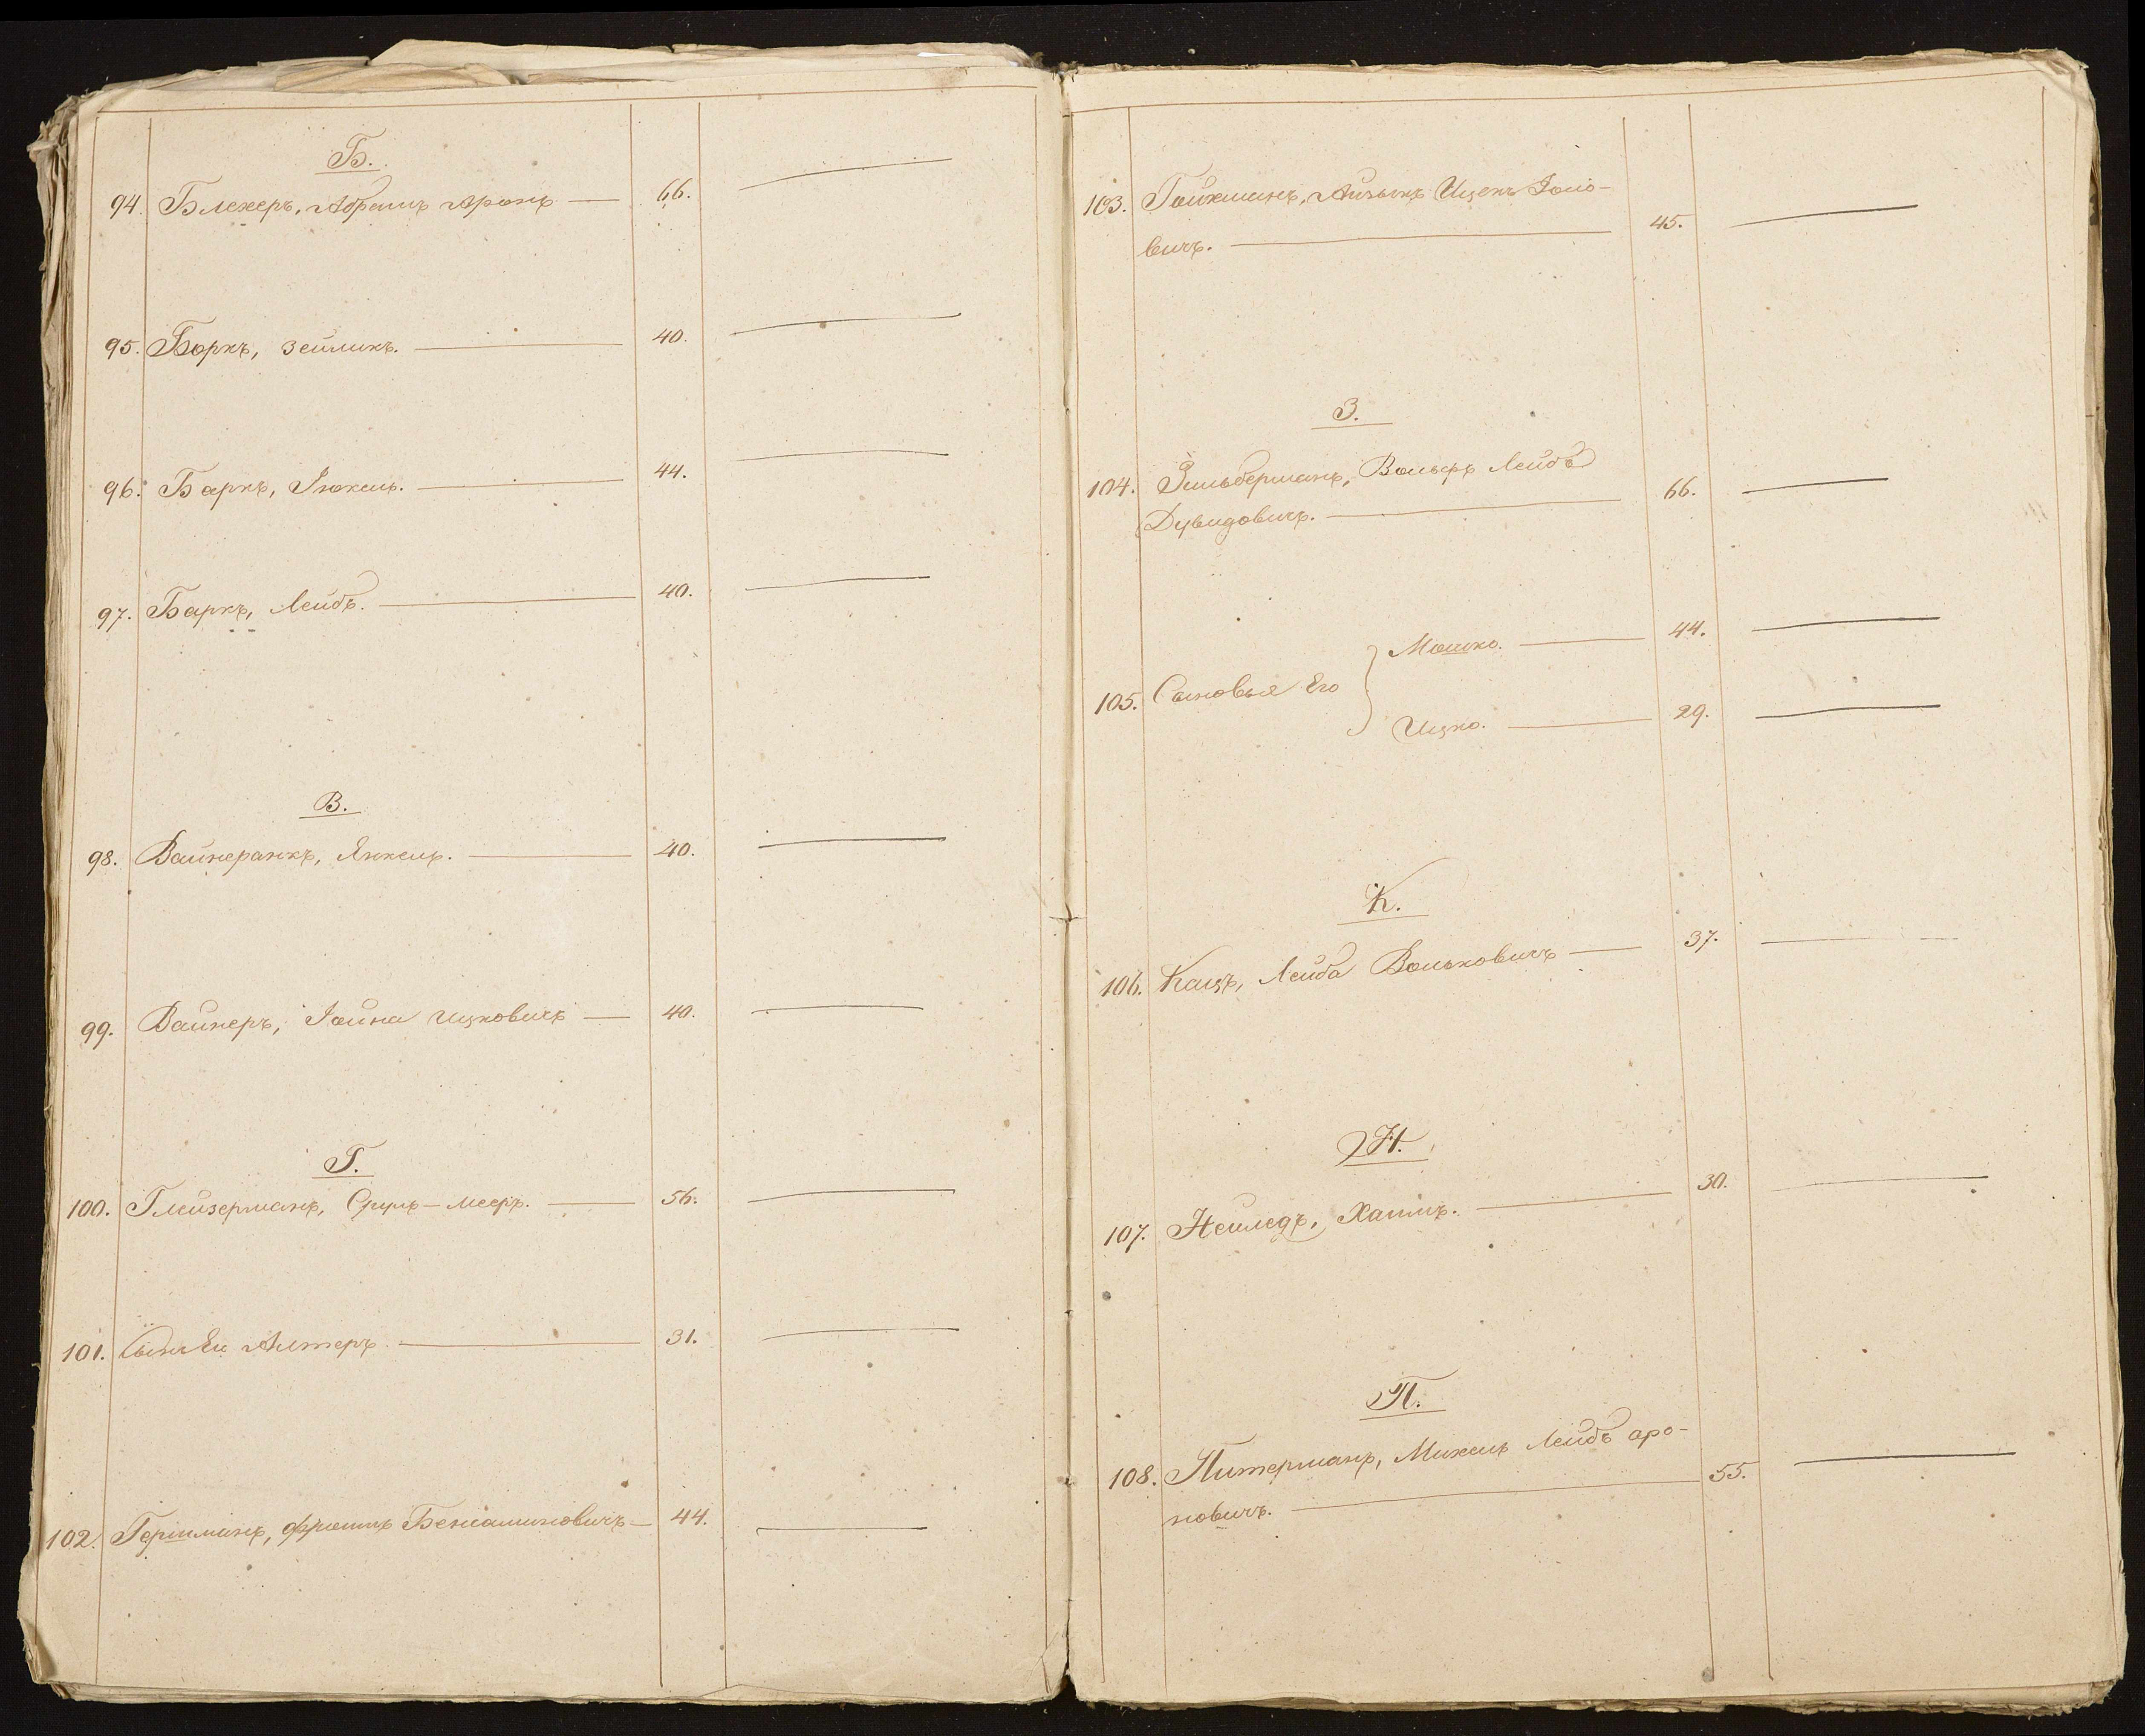 Б.
94. Блехеръ, Абрамъ Аронъ — 66.
95. Боркъ, Зейликъ. — 40.
96. Баркъ, — 44.
97. Баркъ, Лейбъ. — 40.
В.
98. Вайнеранкъ, Янкель. — 40.
99. Вайнеръ, Іойна Ицковичъ — 40.
Г.
100. Глейзерманъ, Сруль-Мееръ. — 56.
101. Сынъ Его Алтеръ — 31.
102. Гершманъ, Бенсаминовичъ — 44.
103. Гойхманъ, Айзыкъ Ицекъ
вичъ. — 45.
З.
104. Зильберманъ, Вольфъ Лейбъ
Дувидовичъ. — 66.
105. Сыновья Его } Мошко. — 44.
Ицко. — 29.
К.
106. Кацъ, Лейба Вольковичъ — 37.
Н.
107. Нейледъ, Хаимъ. — 30.
П.
108. Питерманъ, Михель Лейбъ Аро-
новичъ. — 55.